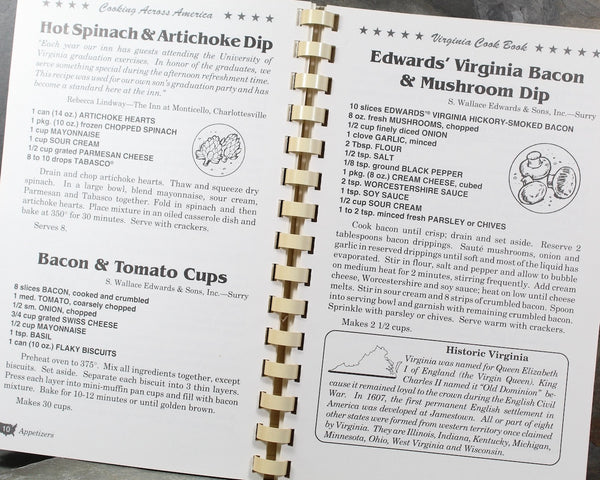 ★ ★ ★ ★ Cooking Across America ★ ★ ★ ★
Hot Spinach & Artichoke Dip
"Each year our inn has guests attending the University of
Virginia graduation exercises. In honor of the graduates, we
serve something special during the afternoon refreshment time.
This recipe was used for our own son's graduation party and has
become a standard here at the inn."
Rebecca Lindway—The Inn at Monticello, Charlottesville
1 can (14 oz.) ARTICHOKE HEARTS
1 pkg. (10 oz.) frozen CHOPPED SPINACH
1 cup MAYONNAISE
1 cup SOUR CREAM
1/2 cup grated PARMESAN CHEESE
8 to 10 drops TABASCO®
Drain and chop artichoke hearts. Thaw and squeeze dry
spinach. In a large bowl, blend mayonnaise, sour cream,
Parmesan and Tabasco together. Fold in spinach and then
artichoke hearts. Place mixture in an oiled casserole dish and
bake at 350° for 30 minutes. Serve with crackers.
Serves 8.
Bacon & Tomato Cups
S. Wallace Edwards & Sons, Inc.—Surry
8 slices BACON, cooked and crumbled
1 med. TOMATO, coarsely chopped
1/2 sm. ONION, chopped
3/4 cup grated SWISS CHEESE
1/2 cup MAYONNAISE
1 tsp. BASIL
1 can (10 oz.) FLAKY BISCUITS
Preheat oven to 375°. Mix all ingredients together, except
biscuits. Set aside. Separate each biscuit into 3 thin layers.
Press each layer into mini-muffin pan cups and fill with bacon
mixture. Bake for 10-12 minutes or until golden brown.
Makes 30 cups.
10 Appetizers
★ ★ ★ ★ ★ Virginia Cook Book ★ ★ ★ ★ ★
Edwards' Virginia Bacon
& Mushroom Dip
S. Wallace Edwards & Sons, Inc.—Surry
10 slices EDWARDS'® VIRGINIA HICKORY-SMOKED BACON
8 oz. fresh MUSHROOMS, chopped
1/2 cup finely diced ONION
1 clove GARLIC, minced
2 Tbsp. FLOUR
1/2 tsp. SALT
1/8 tsp. ground BLACK PEPPER
1 pkg. (8 oz.) CREAM CHEESE, cubed
2 tsp. WORCESTERSHIRE SAUCE
1 tsp. SOY SAUCE
1/2 cup SOUR CREAM
1 to 2 tsp. minced fresh PARSLEY or CHIVES
Cook bacon until crisp; drain and set aside. Reserve 2
tablespoons bacon drippings. Sauté mushrooms, onion and
garlic in reserved drippings until soft and most of the liquid has
evaporated. Stir in flour, salt and pepper and allow to bubble
on medium heat for 2 minutes, stirring frequently. Add cream
cheese, Worcestershire and soy sauce; heat on low until cheese
melts. Stir in sour cream and 8 strips of crumbled bacon. Spoon
into serving bowl and garnish with remaining crumbled bacon.
Sprinkle with parsley or chives. Serve warm with crackers.
Makes 2 1/2 cups.
Historic Virginia
Virginia was named for Queen Elizabeth
I of England (the Virgin Queen). King
Charles II named it "Old Dominion" be-
cause it remained loyal to the crown during the English Civil
War. In 1607, the first permanent English settlement in
America was developed at Jamestown. All or part of eight
other states were formed from western territory once claimed
by Virginia. They are Illinois, Indiana, Kentucky, Michigan,
Minnesota, Ohio, West Virginia and Wisconsin.